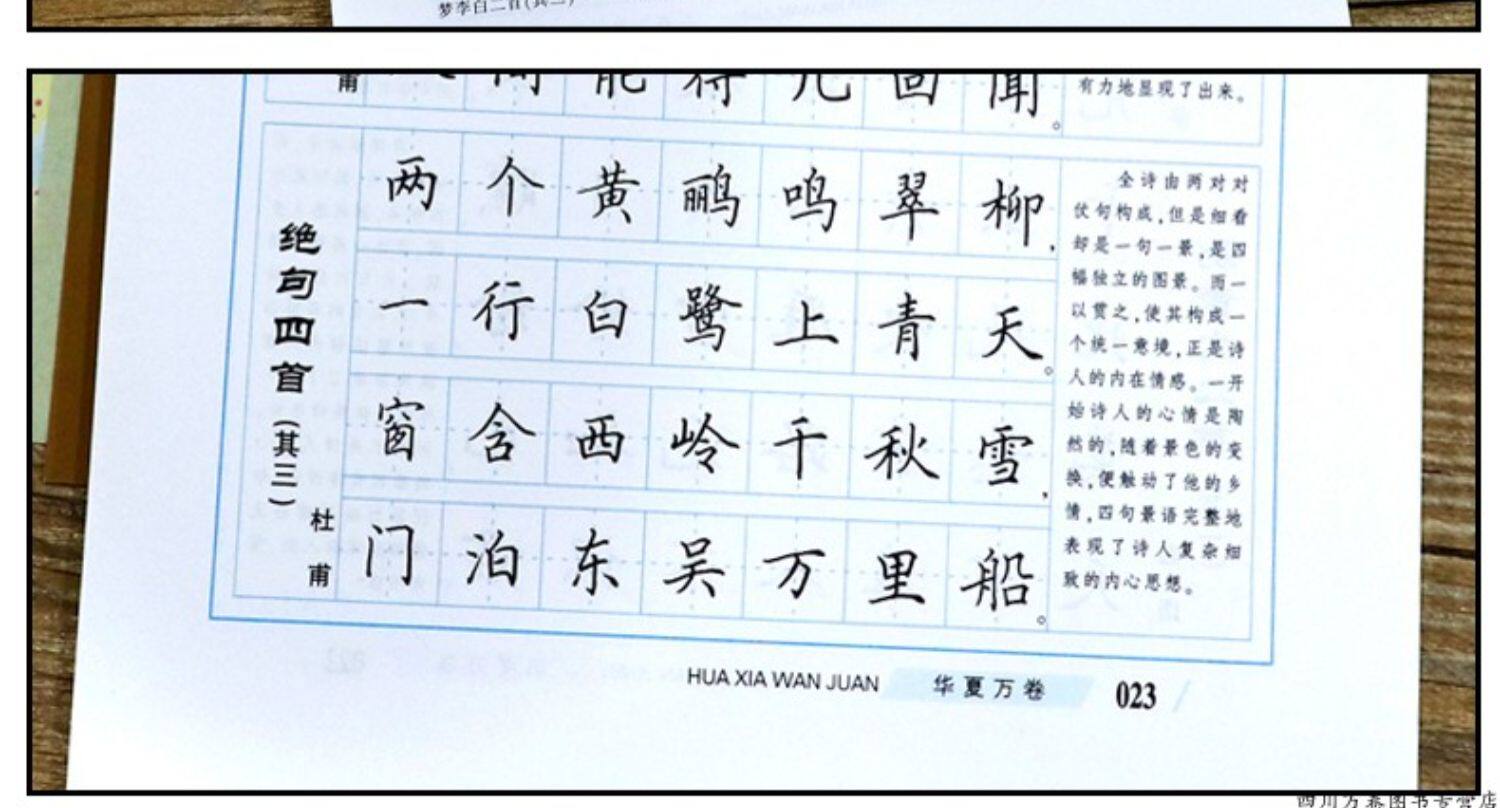 梦李白二首(其二)
甫
间能得几回闻。
有力地显现了出来。
绝句四首(其三)
杜甫
两个黄鹂鸣翠柳,
一行白鹭上青天。
窗含西岭千秋雪,
门泊东吴万里船。
全诗由两对对
仗句构成,但是细看
却是一句一景,是四
幅独立的图景。而一
以贯之,使其构成一
个统一意境,正是诗
人的内在情感。一开
始诗人的心情是陶
然的,随着景色的变
换,便触动了他的乡
情,四句景语完整地
表现了诗人复杂细
致的内心思想。
HUA XIA WAN JUAN 华夏万卷 023